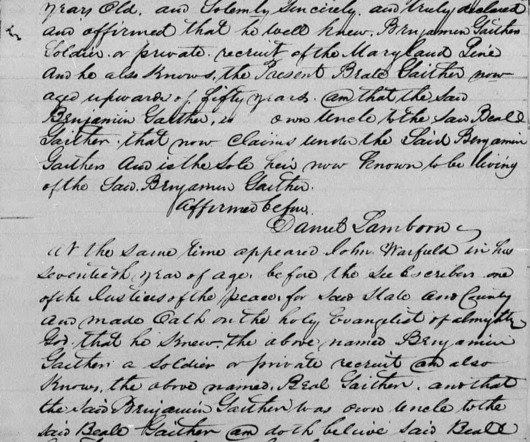 years Old, and Solemnly Sincerely, and truly declared
and affirmed that he well knew, Benjamin Gaither
Soldier or private recruit of the Maryland Line
And he also Knows, the Present Beale Gaither now
aged upwards of fifty years and that the Said
Benjamin Gaither, is own Uncle to the Said Beald
Gaither, that now Claims under the Said Benjamin
Gaither And is the Sole heir now Known to be living
of the Said Benjamin Gaither.
Affirmed before
Daniel Lamborn
At the same time appeared John Warfield in his
Seventieth year of age before the Subscriber one
of the Justices of the peace, for Said State And County
And made Oath on the holy Evangelist of almighty
God, that he Knew, the above named Benjamin
Gaither a Soldier or private recruit and also
Knows, the above named, Beal Gaither, and that
the Said Benjamin Gaither was own Uncle to the
Said Beale Gaither and doth believe Said Beale